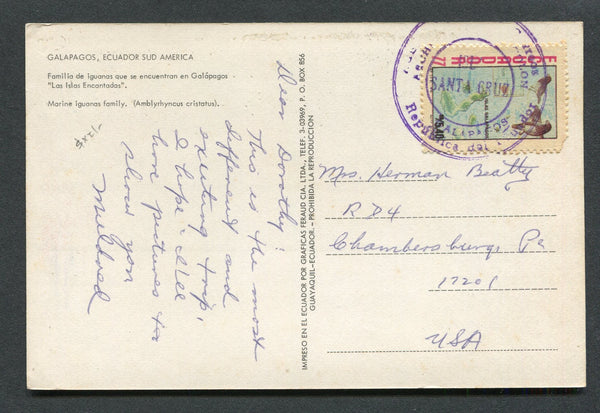 GALAPAGOS, ECUADOR SUD AMERICA
Familia de iguanas que se encuentran en Galápagos -
"Las Islas Encantadas"
Marine iguanas family. (Amblyrhynous cristatus).
Dear Dorothy:
This is the most
different and
exciting trip,
I hope I'll
have pictures to
show you
Mildred
IMPRESO EN EL ECUADOR POR GRAFICAS FERAUD CIA. LTDA., TELEF. 3-03969, P. O. BOX 856
GUAYAQUIL-ECUADOR. - PROHIBIDA LA REPRODUCCION
ECUADOR
SANTA CRUZ
GALAPAGOS
República del
Mrs. Herman Beatty
R D 4
Chambersburg, Pa
17201
USA